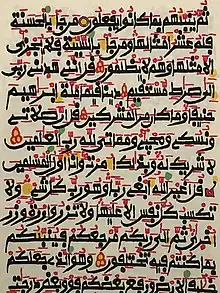 ثم ينبئهم بما كانوا يفعلون من جاء بالحسنة
فله عشر أمثالها ومن جاء بالسيئة فلا يجزى
إلا مثلها وهم لا يظلمون قل إنني هدىني ربي
إلى صراط مستقيم دينا قيما ملة إبرهيم
حنيفا وما كان من المشركين قل إن صلاتي
ونسكي ومحياي ومماتي لله رب العلمين
لا شريك له وبذلك أمرت وأنا أول المسلمين
قل أغير الله أبغي ربا وهو رب كل شيء ولا
تكسب كل نفس إلا عليها ولا تزر وازرة وزر
أخرى ثم إلى ربكم مرجعكم فينبئكم
بما كنتم فيه تختلفون وهو الذي جعلكم
خلئف الأرض ورفع بعضكم فوق بعض درجت